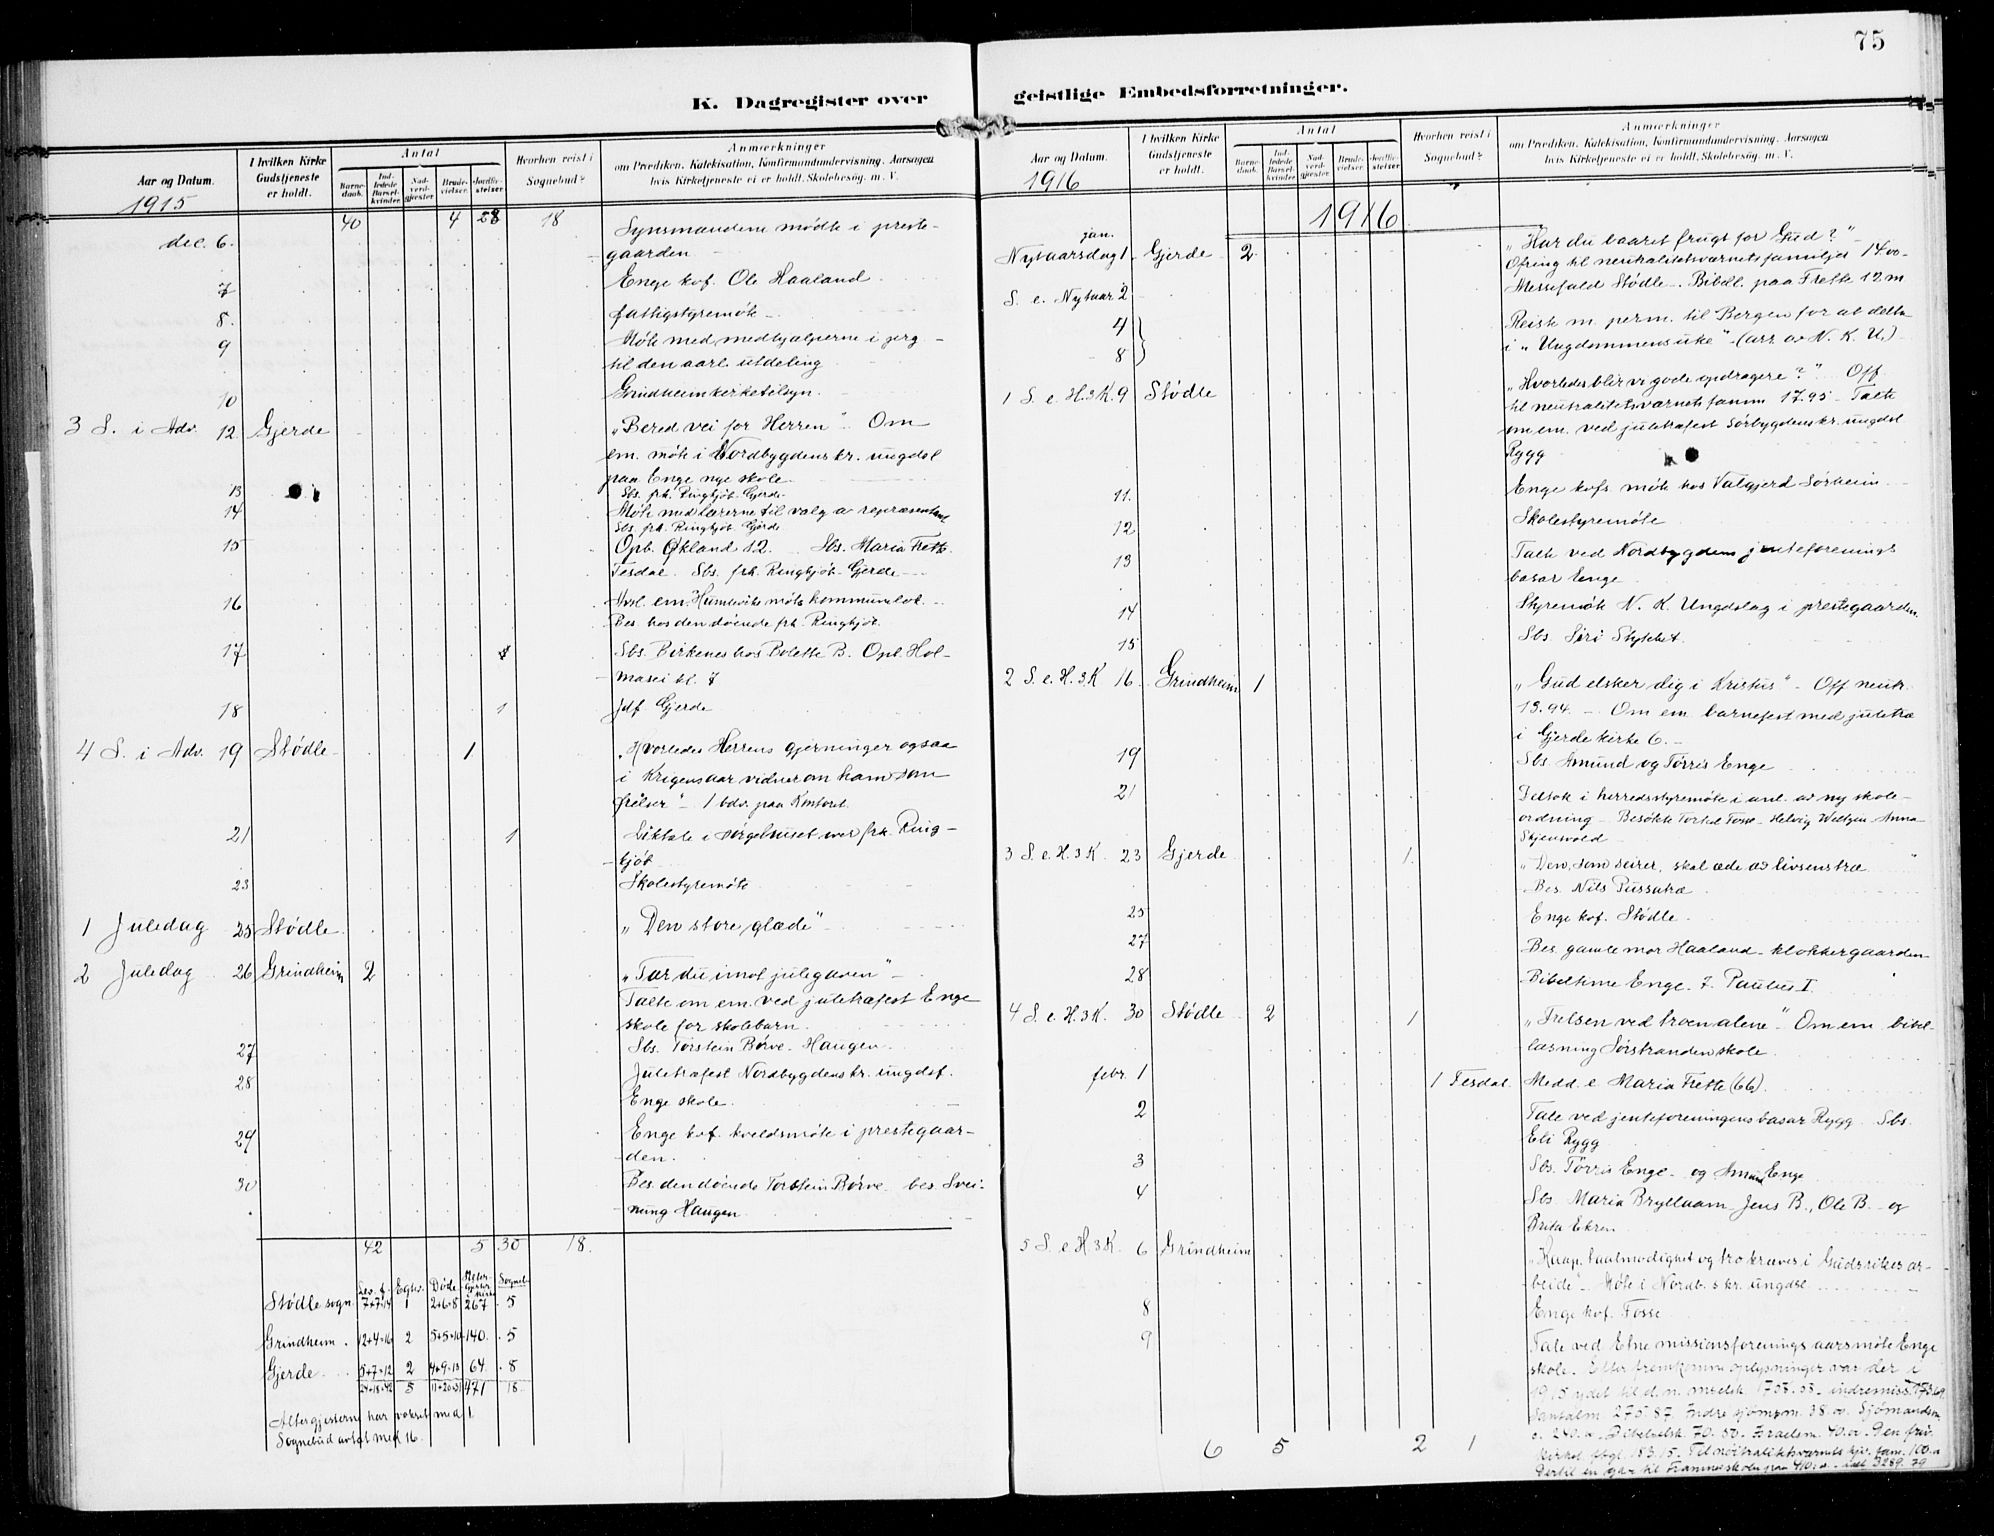 75
K. Dagregister over
geistlige Embedsforretninger.
Aar og Datum.
1915
I hvilken Kirke Gudstjeneste er holdt.
Antal
Barne- daab.
Ind- ledede Barsel- kvinder.
Nad- verd- gjester.
Brude- vielser.
Jordfæ- stelser.
Hvorhen reist i Sognebud?
Anmærkninger
om Prædiken, Katekisation, Konfirmandundervisning, Aarsagen
hvis Kirketjeneste ei er holdt, Skolebesøg, m. V.
40 4 28 18
dec. 6. Synsmændene mødte i preste-
gaarden
7 Enge kof. Ole Haaland
8. fattigstyremøte
9 Møte med medhjælperne i
til den aarl. utdeling
10 Grindheim kirketilsyn.
3 S. i Adv. 12. Gjerde "Bered vei for Herren". Om
em. møte i Nordbygdens kr. ungdsl
paa Enge nye skole.
13 Sbs. frk. Ringkjøb Gjerde
14 Møte med lærerne til valg a repræsentant
Sbs. frk. Ringkjøb Gjerde
15 Opb. Økland 12. Sbs. Maria Frette
Tesdal. Sbs. frk. Ringkjøb Gjerde
16 em. Humlevik møte kommunelok.
Bes. hos den døende frk. Ringkjøb.
17 Sbs. Birkenes hos Bolette B. Opl. Hol-
masei kl. 7
18 1 Jdf. Gjerde
4 S. i Adv. 19 Stødle 1 "Hvorledes Herrens gjerninger ogsaa
i Krigensaar vidner om ham som
frelser" - 1 bdv. paa Kontoret.
21 1 Liktale i sørgehuset over frk. Ring-
kjøb
23 Skolestyremøte
1 Juledag 25 Stødle "Den store glæde"
2 Juledag 26 Grindheim 2 "Tar du imot julegaven"
Talte om em. ved juletræfest Enge
skole for skolebarn.
27 Sbs. Torstein Børve. Haugen.
28 Juletræfest Nordbygdens kr. ungdsf.
Enge skole.
29 Enge kof. kveldsmøte i prestegaar-
den.
30 Bes. den døende Torstein Børve. bes. Svei-
nung Haugen.
42 5 30 18.
Lev. f. Egtev. Døde Alter- gjester i kirke Sogneb.
Stødle sogn. 7+7=14 1 2+6=8 267 5
Grindheim. 12+4=16 2 5+5=10 140. 5
Gjerde. 5+7=12 2 4+9=13 64. 8
24+18=42 5 11+20=31 471 18.
Altergjesterne har vokset med 1.
Sognebud avtat med 16.
Aar og Datum.
1916
I hvilken Kirke Gudstjeneste er holdt.
Antal
Barne- daab.
Ind- ledede Barsel- kvinder.
Nad- verd- gjester.
Brude- vielser.
Jordfæ- stelser.
Hvorhen reist i Sognebud?
Anmærkninger
om Prædiken, Katekisation, Konfirmandundervisning, Aarsagen
hvis Kirketjeneste ei er holdt, Skolebesøg, m. V.
1916
jan.
Nytaarsdag 1 Gjerde 2. "Har du baaret frugt for Gud?"
Ofring til neutralitetsværnets familjer 14.00
S. e. Nytaar 2 Messefald Stødle. Bibell. paa Frette 12 m
4 Reist m. perm. til Bergen for at delta
8 i "Ungdommens uke" (arr. av N. K. U.)
1 S. e. H.3K. 9 Stødle "Hvorledes blir vi gode opdragere?" Off.
til neutralitetsværnets famm 17.95 - Talte
om em. ved juletræfest Sørbygdens kr. ungdsl
Rygg
11. Enge kofs. møte hos Valgjerd Sørheim
12 Skolestyremøte
13 Talte ved Nordbygdens jenteforenings
basar Enge
14 Styremøte N. K. Ungdslag i prestegaarden
15 Sbs. Siri Stykket.
2 S. e. H. 3K 16 Grindheim 1 "Gud elsker dig i Kristus" - Off neutr.
13.94. - Om em. barnefest med juletræ
i Gjerde kirke 6.
19 Sbs. Amund og Tørris Enge
21 Deltok i herredsstyremøte i anl. av ny skole-
ordning - Besøkte Torkel Tosse - Helvig Anna
Skjensvold
3 S. e. H. 3 K. 23 Gjerde 1. "Den, som seirer, skal æde av livsens træ"
Bes. Nils
25 Enge kof. Stødle.
27 Bes. gamle mor Haaland - klokkergaarden
28 Bibeltime Enge. 7. Paulus I.
4 S. e. H.3K. 30 Stødle 2 1 "Frelsen ved troen alene." Om em. bibel-
læsning Sørstranden skole.
febr. 1 1 Tesdal. Medd. e. Maria Frette (66).
2 Tale ved jenteforeningens basar Rygg. Sbs.
Eli Rygg
3 Sbs. Tørris Enge - og Amund Enge
4 Sbs. Maria Bryllaam Jens B., Ole B. og
Brita Ekren
5 S. e H 3K. 6 Grindheim "Haap, taalmodighet og tro kræves i Gudsrikes ar-
beide" - Møte i Nordb. s kr. ungdsl.
8 Enge kof. Tosse
9 Tale ved Etne missionsforenings aarsmøte Enge
skole. Efter fremkomm oplysninger var der i
1915 ydet til d. n. mselsk. 1708.08 - indremiss.
Santalm 275.87. Indre sjømsm. 38.00. Sjømandsm.
240.00 Bibelselsk. 70.50 - Israelsm. 40.00
183.15. Til nøitralitetsværnets hjv. fam. 100.00
3289.79
6 5 2 1